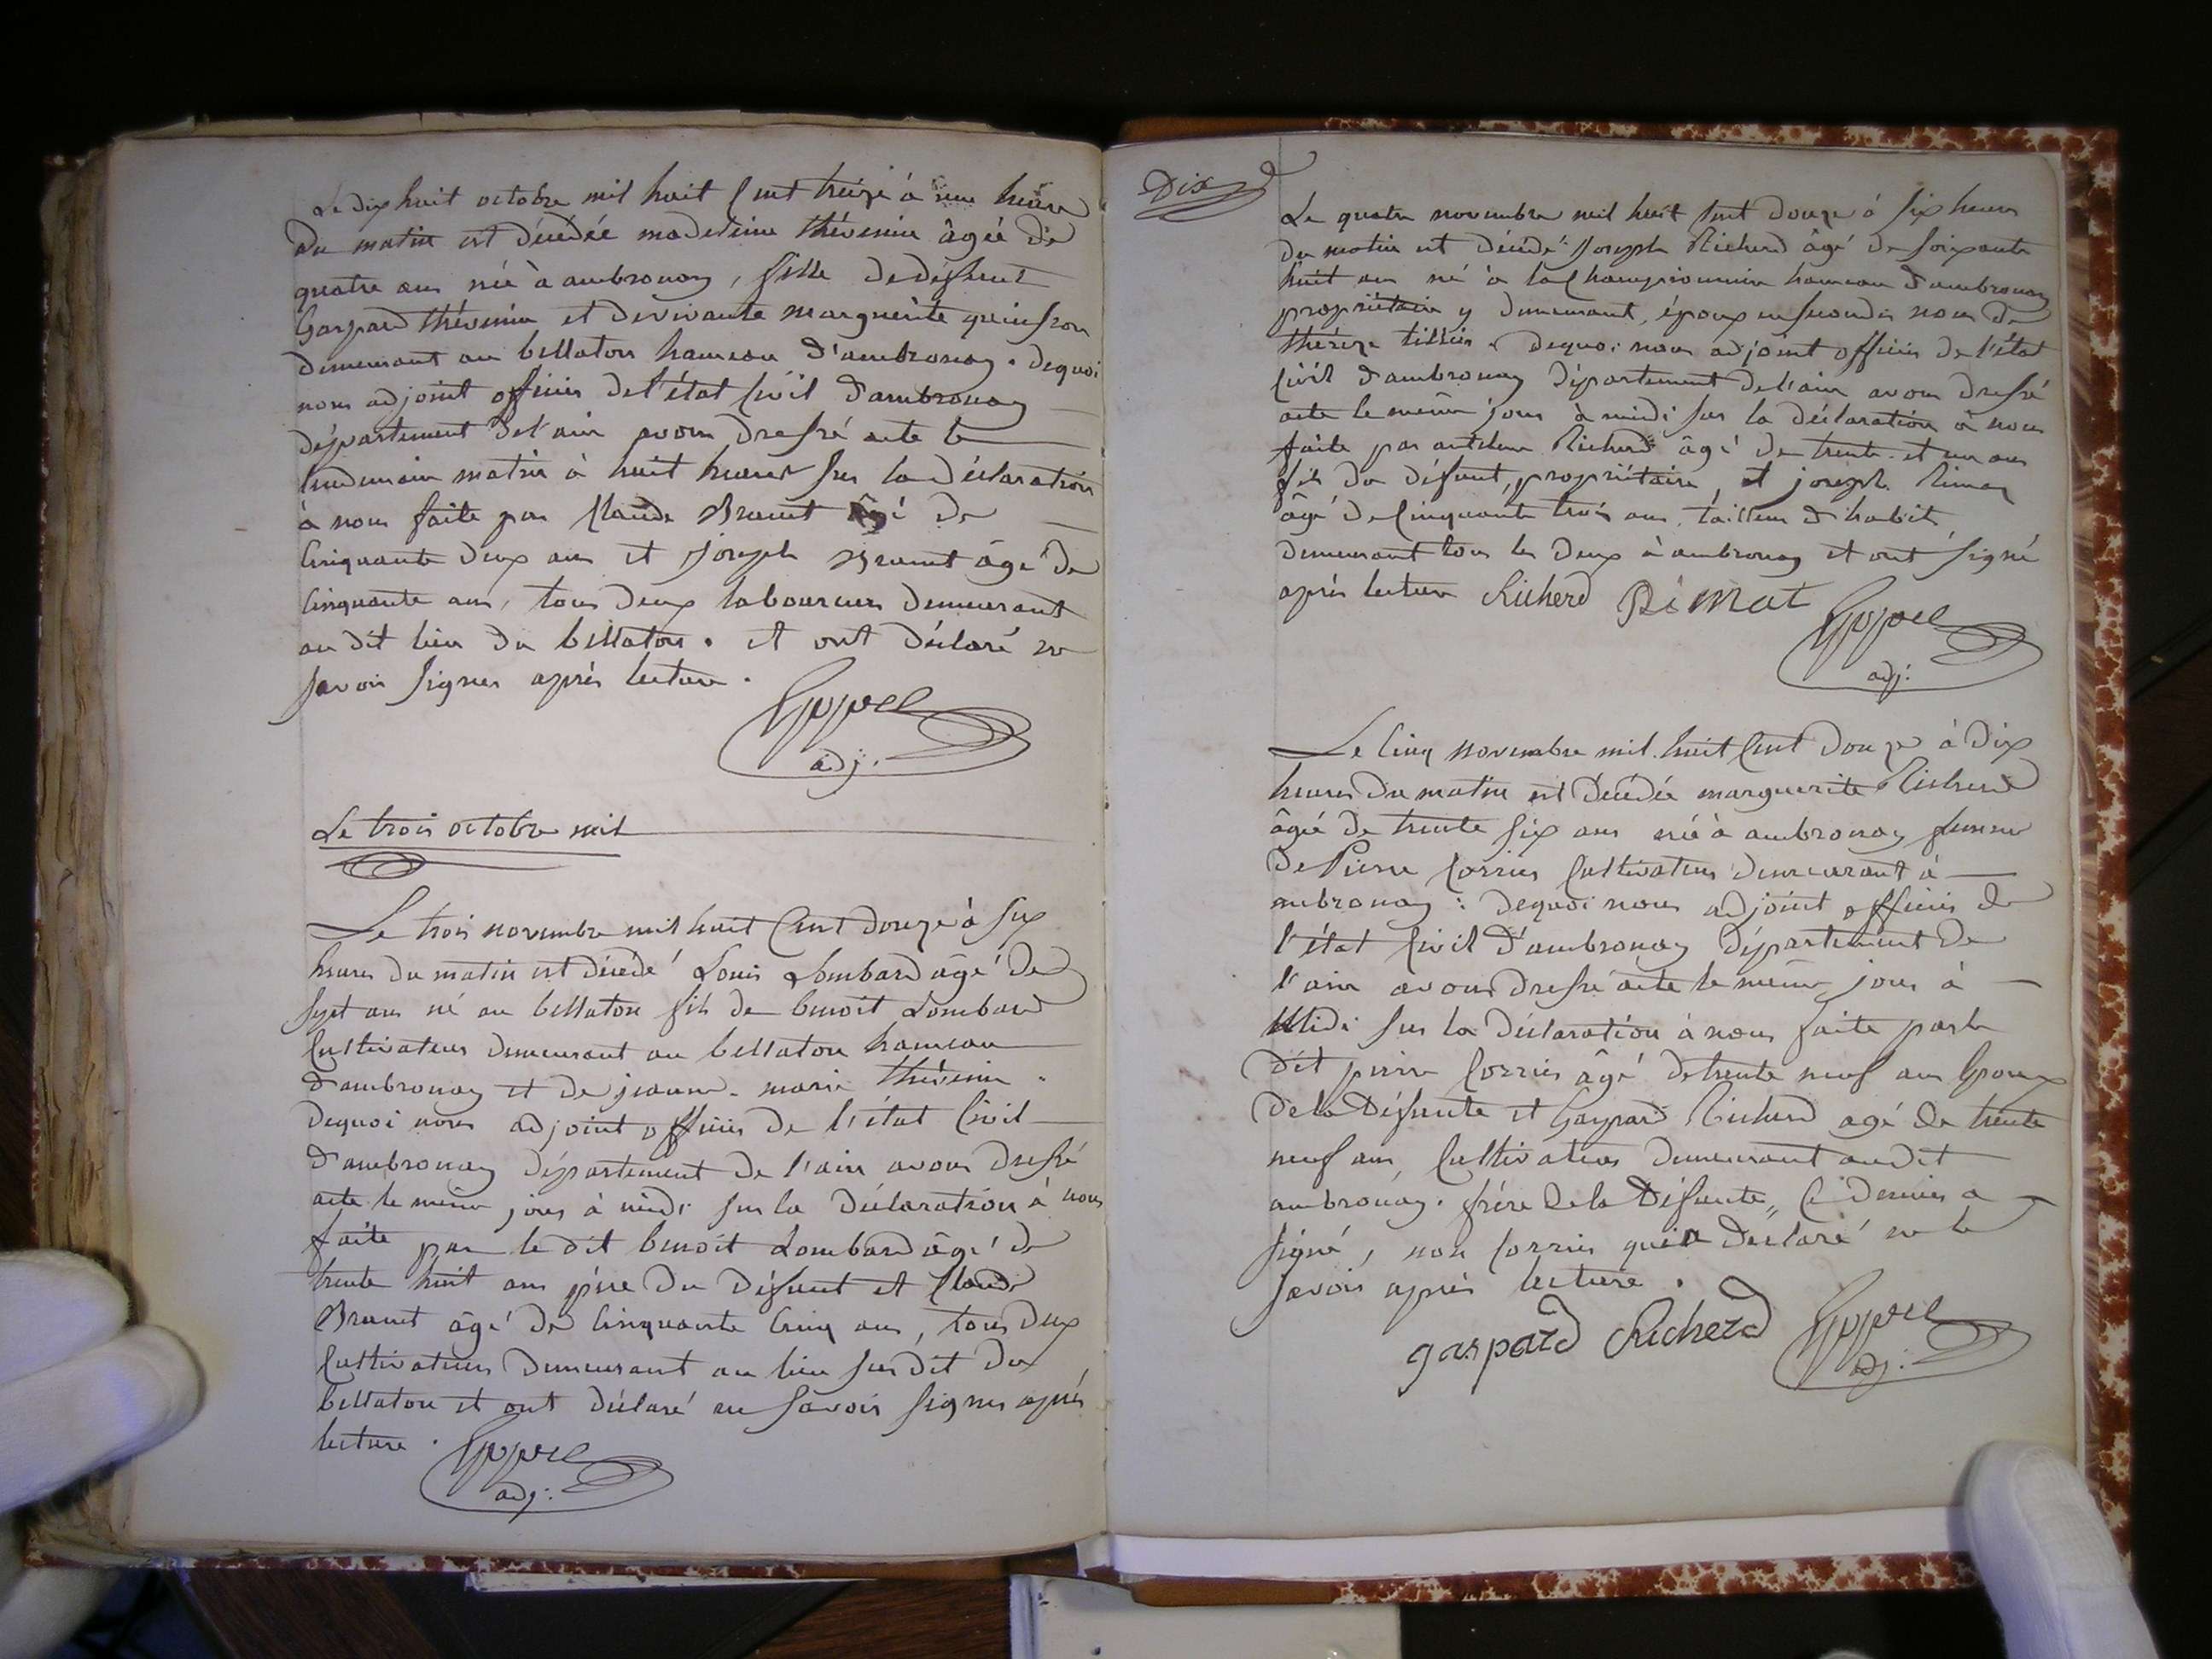 Le dix huit octobre mil huit Cent treize à une heure
du matin est décédée madeleine thévenin âgée de
quatre ans née à ambronay, fille de défunt
Gaspard thévenin et de vivante marguerite quinson
demeurant au bellaton hameau d'ambronay. dequoi
nous adjoint officier de l'état Civil d'ambronay
département de l'ain avons dressé acte le
lendemain matin à huit heures sur la déclaration
à nous faite par Claude Brunet âgé de
Cinquante deux ans et joseph Brunet âgé de
Cinquante ans, tous deux laboureurs demeurant
au dit lieu du bellaton. et ont déclaré ne
savoir signer après lecture.
adj.
Le trois octobre mil
Le trois novembre mil huit Cent douze à six
heures du matin est décédé Louis Lombard âgé de
sept ans né au bellaton fils de benoit Lombard
Cultivateur demeurant au bellaton hameau
d'ambronay et de jeanne-marie thévenin.
dequoi nous adjoint officier de l'état Civil
d'ambronay département de l'ain avons dressé
acte le même jour à midi sur la déclaration à nous
faite par le dit benoit Lombard âgé de
trente huit ans père du défunt et Claude
Brunet âgé de Cinquante Cinq ans, tous deux
Cultivateurs demeurant au lieu sus dit du
bellaton et ont déclaré ne savoir signer après
lecture.
adj.
Dix
Le quatre novembre mil huit Cent douze à six heures
du matin est décédé joseph Richerd âgé de soixante
huit ans né à la hameau d'ambronay
propriétaire y demeurant, époux en secondes noces de
thérèze tissier. dequoi nous adjoint officier de l'état
Civil d'ambronay département de l'ain avons dressé
acte le même jour à midi sur la déclaration à nous
faite par Richerd âgé de trente et un ans
fils du défunt, propriétaire, et joseph Rimat
âgé de Cinquante trois ans, tailleur d'habits
demeurant tous les deux à ambronay et ont signé
après lecture Richerd Rimat
adj.
Le Cinq novembre mil huit Cent douze à dix
heures du matin est décédée marguerite Richerd
âgée de trente six ans née à ambronay femme
de Pierre Corrier Cultivateur demeurant à
ambronay: dequoi nous adjoint officier de
l'état Civil d'ambronay département de
l'ain avons dressé acte le même jour à
Midi sur la déclaration à nous faite par le
dit pierre Corrier âgé de trente neuf ans Epoux
de la défunte et Gaspard Richerd agé de trente
neuf ans, Cultivateur demeurant audit
ambronay. frère de la Défunte,, Ce dernier a
signé, non Corrier qui a déclaré ne le
savoir après lecture.
gaspard Richerd
adj.